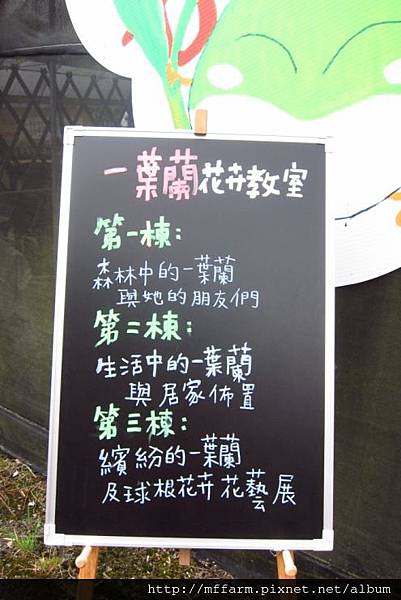 一葉蘭花卉教室
第一棟：
森林中的一葉蘭
與她的朋友們
第二棟：
生活中的一葉蘭
與居家佈置
第三棟：
繽紛的一葉蘭
及球根花卉花藝展
http://mffarm.pixnet.net/album